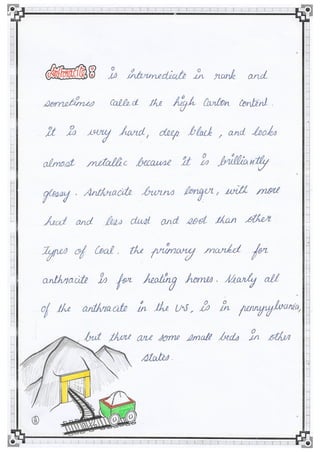 Anthracite : is intermediate in rank and
sometimes called the high Carbon content.
It is very hard, deep black, and looks
almost metallic because it is brilliantly
glossy. Anthracite burns longer, with more
heat and less dust and soot than other
Types of Coal. the primary market for
anthracite is for heating homes. Nearly all
of the anthracite in the US, is in pennyylvania,
but there are some small beds in other
states.